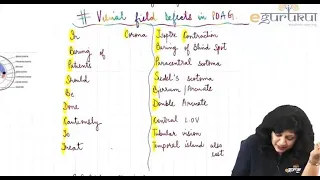 eGurukul
# Visual field defects in POAG
In Corona Isoptre Contraction
Baring of Baring of Blind Spot
Patients Paracentral scotoma
Should Siedel's scotoma
Be Bjerrum/Arcuate
Done Double Arcuate
Cautiously Central LOV
To Tubular vision
Treat Temporal island also
lost